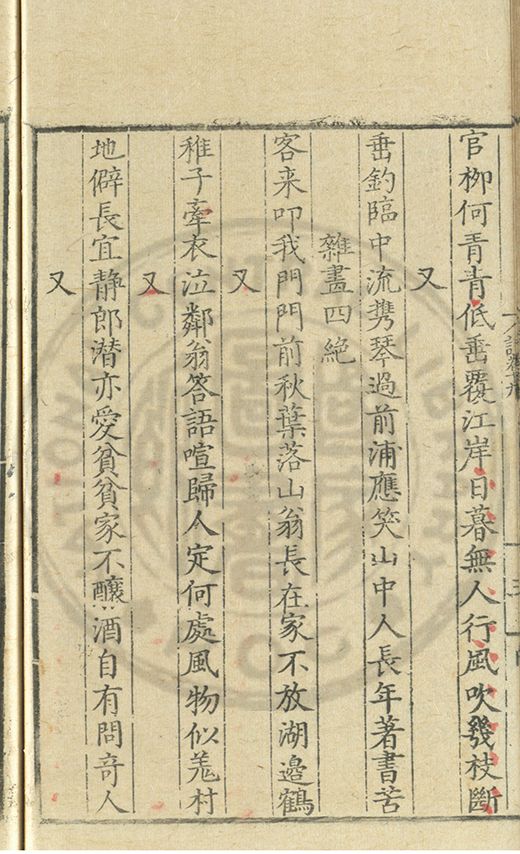 官栁何青青低垂覆江岸日暮無人行風吹幾枝斷
又
垂釣臨中流携琴過前浦應笑山中人長年著書苦
雜畫四絶
客来叩我門門前秋葉落山翁長在家不放湖邉鶴
又
稚子牽衣泣鄰翁答語喧歸人定何處風物似羗村
又
地僻長宜静郎潜亦愛貧貧家不釀酒自有問竒人
又